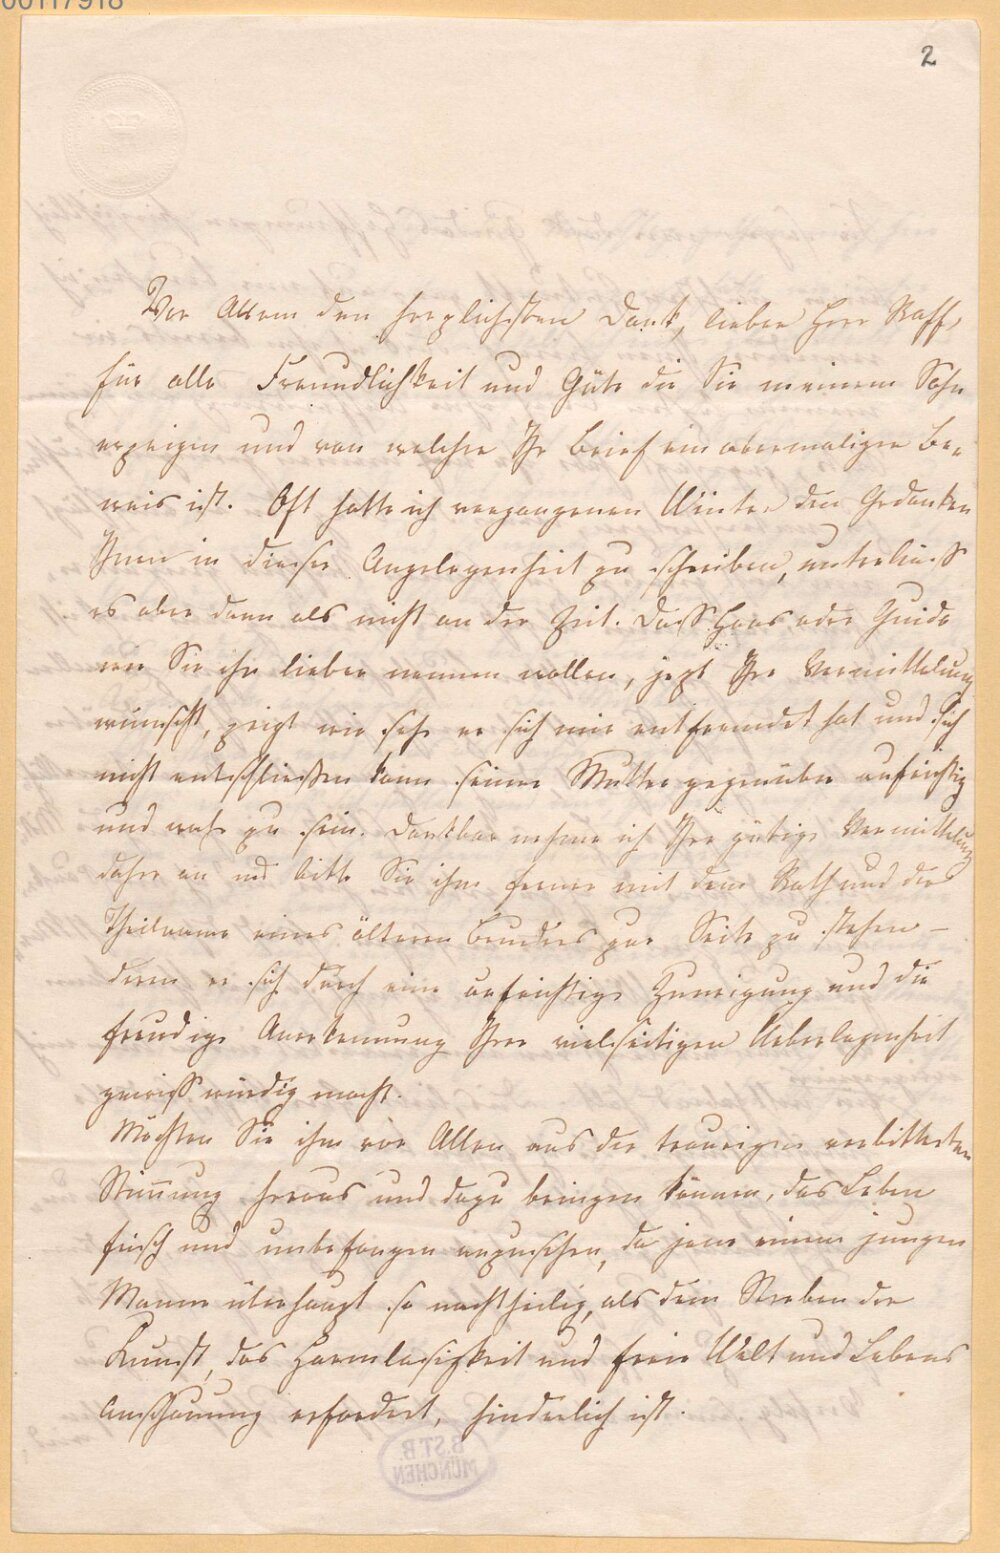 00117918
2
Vor Allem den herzlichsten Dank, lieber Herr Raff,
für alle Freundlichkeit und Güte die Sie meinem Sohn
erzeigen und von welcher Ihr Brief ein abermaliger Be-
weis ist. Oft hatte ich vergangenen Winter den Gedanken
Ihnen in dieser Angelegenheit zu schreiben, unterliess
es aber dann als nicht an der Zeit. Dass Hans oder Guido
wie Sie ihn lieber nennen wollen, jezt Ihre Vermittelung
wünscht, zeigt wie sehr er sich mir entfremdet hat und sich
nicht entschließen kann seiner Mutter gegenüber aufrichtig
und wahr zu sein. Dankbar nehme ich Ihre gütige Vermittelung
daher an und bitte Sie ihm ferner mit dem Rath und der
Theilname eines älteren Bruders zur Seite zu stehen –
deren er sich durch eine aufrichtige Zuneigung und die
freudige Anerkennung Ihrer vielseitigen Ueberlegenheit
gewiss würdig macht.
Möchten Sie ihn vor Allem aus der traurigen verbitterten
Stimmung heraus und dazu bringen können, das Leben
frisch und unbefangen anzusehen, da jene einem jungen
Manne überhaupt so nachtheilig, als dem Streben der
Kunst, das Harmlosigkeit und freie Welt und Lebens
Anschauung erfordert, hinderlich ist.
B.ST.B.
MÜNCHEN